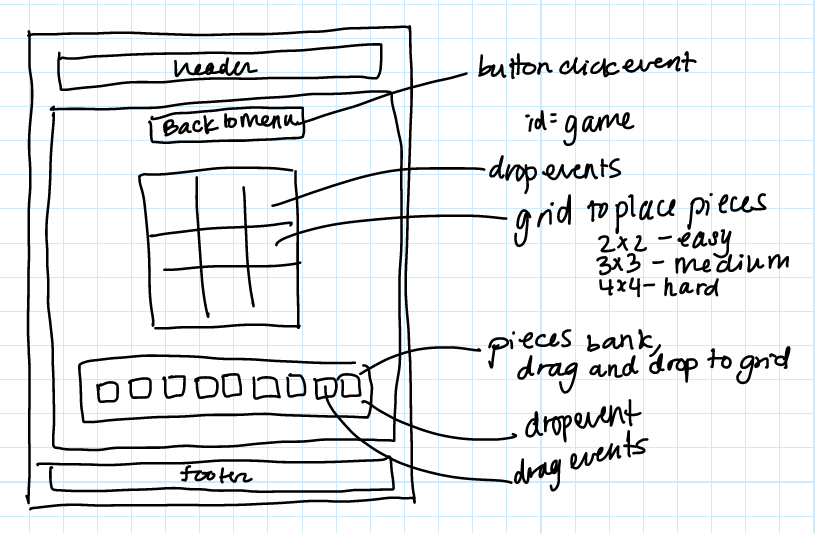 header
button click event
Back to menu
id= game
drop events
grid to place pieces
2x2 - easy
3x3 - medium
4x4 - hard
pieces bank,
drag and drop to grid
dropevent
drag events
footer